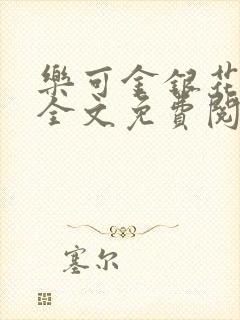 樂可金銀花
全文免費閱
塞尔